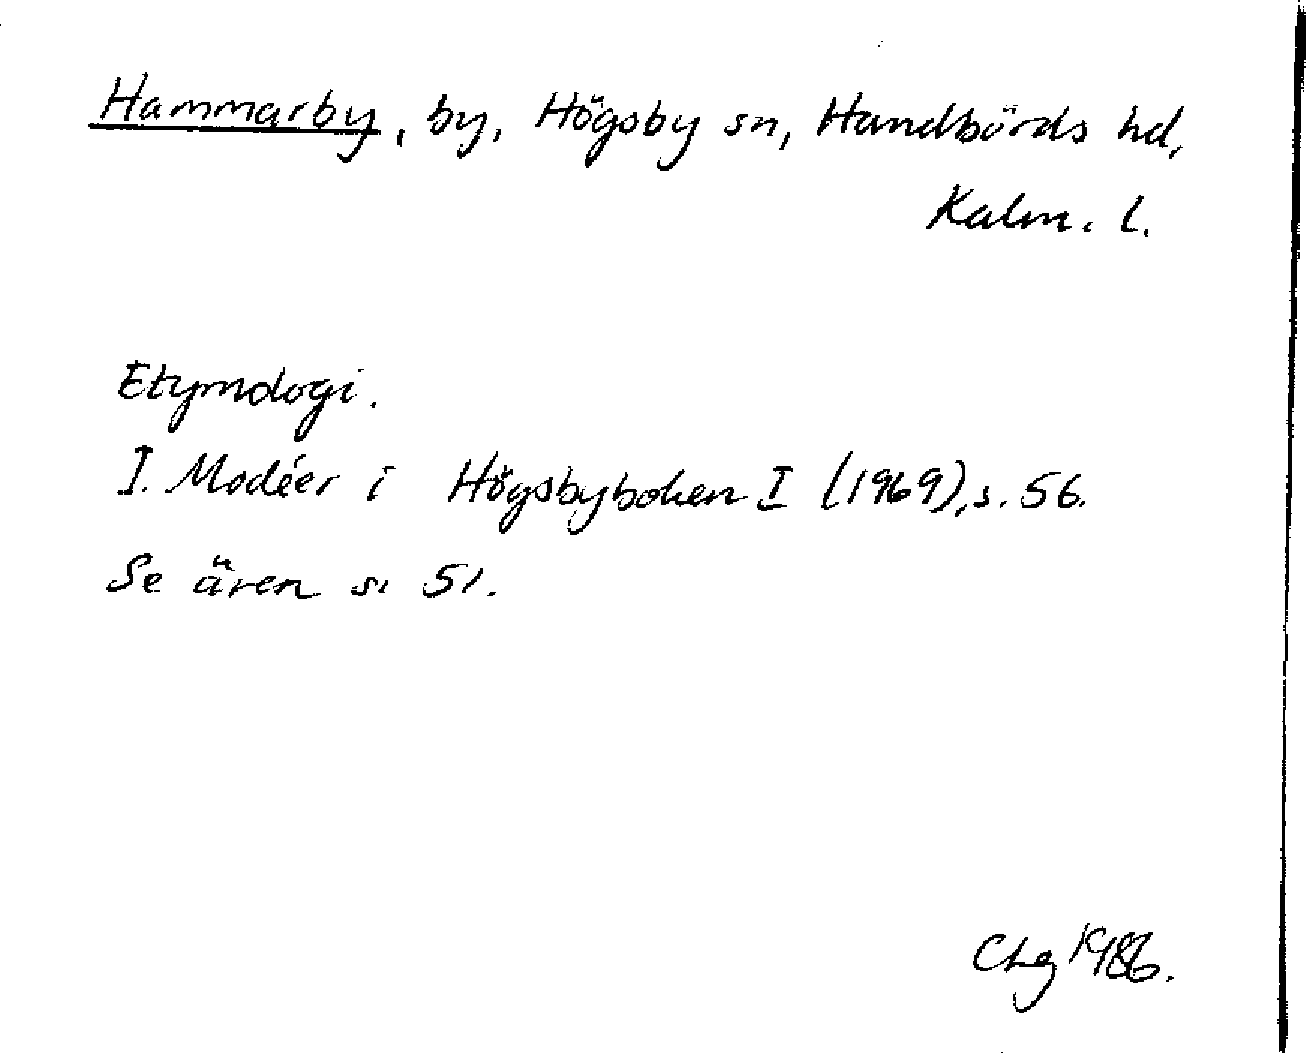 Hammarby, by, Högsby sn, Handbörds hd,
Kalm. l.
Etymologi.
I. Modéer i Högsbyboken I (1969), s. 56.
Se även s. 51.
Chg 1986.